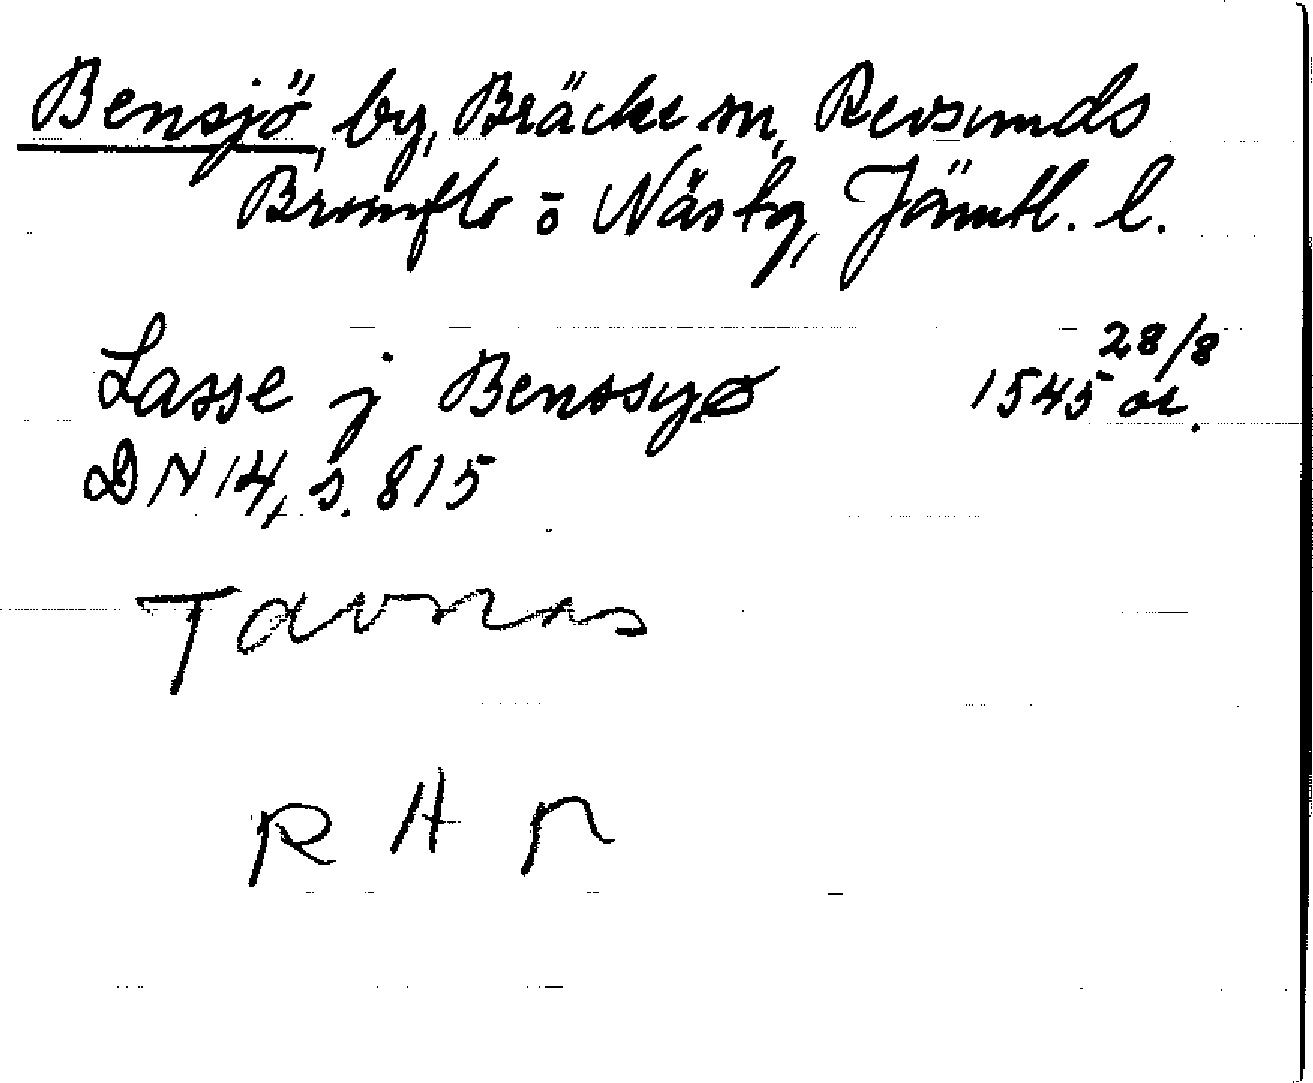 Bensjö, by, Bräcke sn, Revsunds
Brunflo o Näs tg, Jämtl. l.
Lasse j Benssyø 1545 28/8 or.
DN 14, s. 815
R H